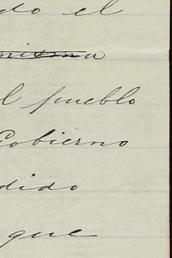 do el
l pueblo
Gobierno
dido
que